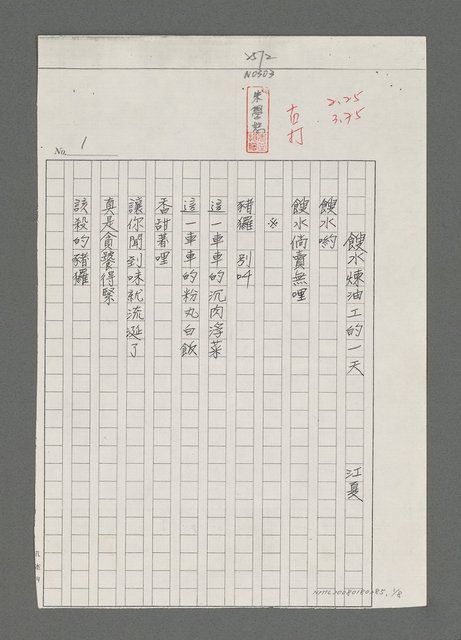 25/2
N0303
2.25
3.35
No. 1
餿水煉油工的一天 江夏
餿水喲
餿水倘賣無哩
※
豬玀 別叫
這一車車的沉肉浮菜
這一車車的粉丸白飯
香甜著哩
讓你聞到味就流涎了
真是貪饕得緊
該殺的豬玀